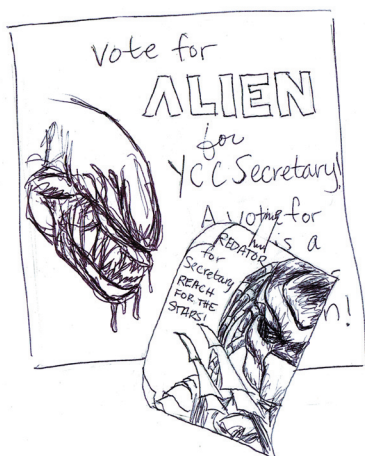 Vote for
ALIEN
for
YCC Secretary!
A voting for
is a
n!
REDATOR
for
Secretary
REACH
FOR THE
STARS!